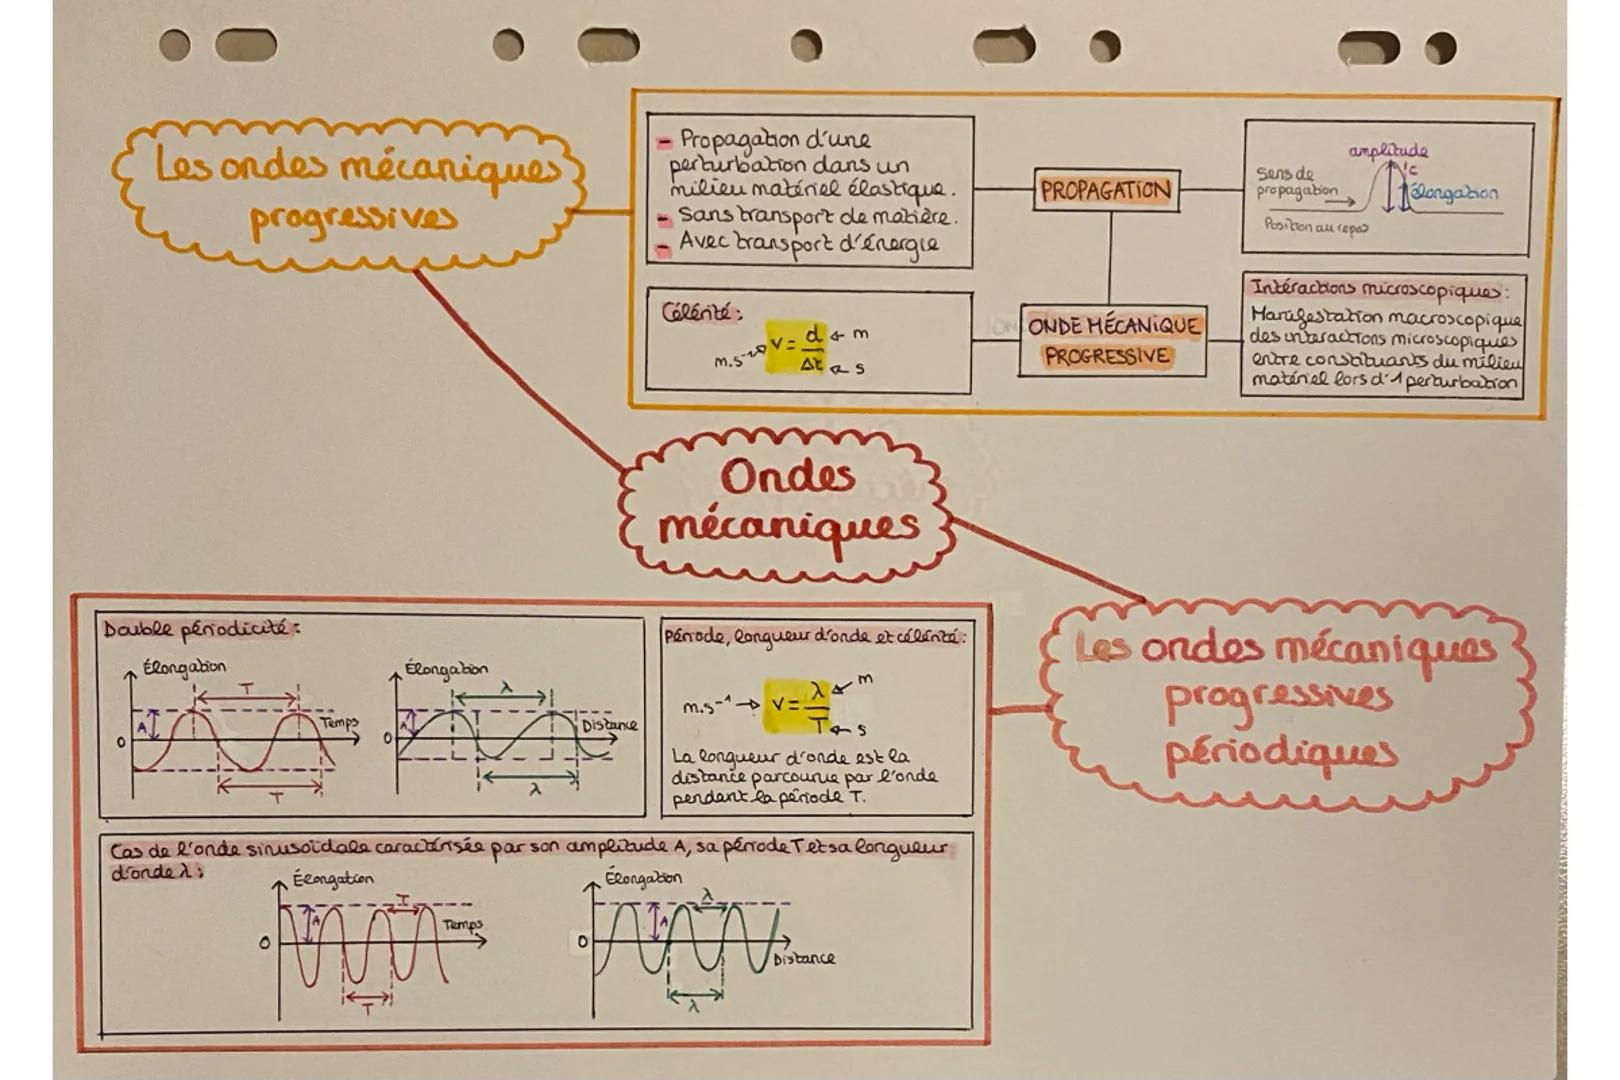 Les ondes mécaniques
progressives
- Propagation d'une
perturbation dans un
milieu matériel élastique.
- Sans transport de matière.
- Avec transport d'énergie
PROPAGATION
amplitude
Sens de
propagation
c
élongation
Position au repos
Célérité :
m.s⁻¹ → v = d/Δt ← m
← s
ONDE MÉCANIQUE
PROGRESSIVE
Intéractions microscopiques :
Manifestation macroscopique
des interactions microscopiques
entre constituants du milieu
matériel lors d'1 perturbation
Ondes
mécaniques
Les ondes mécaniques
progressives
périodiques
Double périodicité :
Élongation
T
A
Temps
0
T
Élongation
λ
A
Distance
0
λ
Période, longueur d'onde et célérité :
m.s⁻¹ → v = λ/T ← m
← s
La longueur d'onde est la
distance parcourue par l'onde
pendant la période T.
Cas de l'onde sinusoïdale caractérisée par son amplitude A, sa période T et sa longueur
d'onde λ :
Élongation
A
T
Temps
0
T
Élongation
A
λ
0
Distance
λ